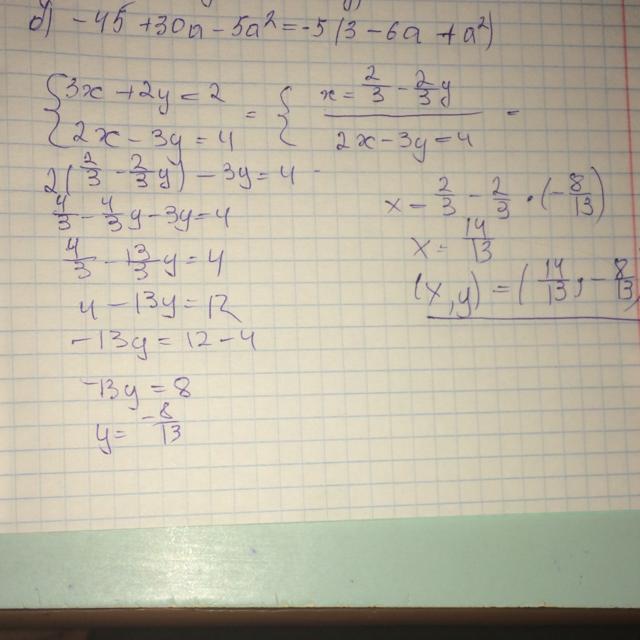 б) -45 + 30a - 5a² = -5(3 - 6a + a²)
{3x + 2y = 2 = {x = 2/3 - 2/3y =
{2x - 3y = 4 {2x - 3y = 4
2(2/3 - 2/3y) - 3y = 4
4/3 - 4/3y - 3y = 4
4/3 - 13/3y = 4
4 - 13y = 12
-13y = 12 - 4
-13y = 8
y = -8/13
x = 2/3 - 2/3 · (-8/13)
x = 14/13
(x,y) = (14/13; -8/13)